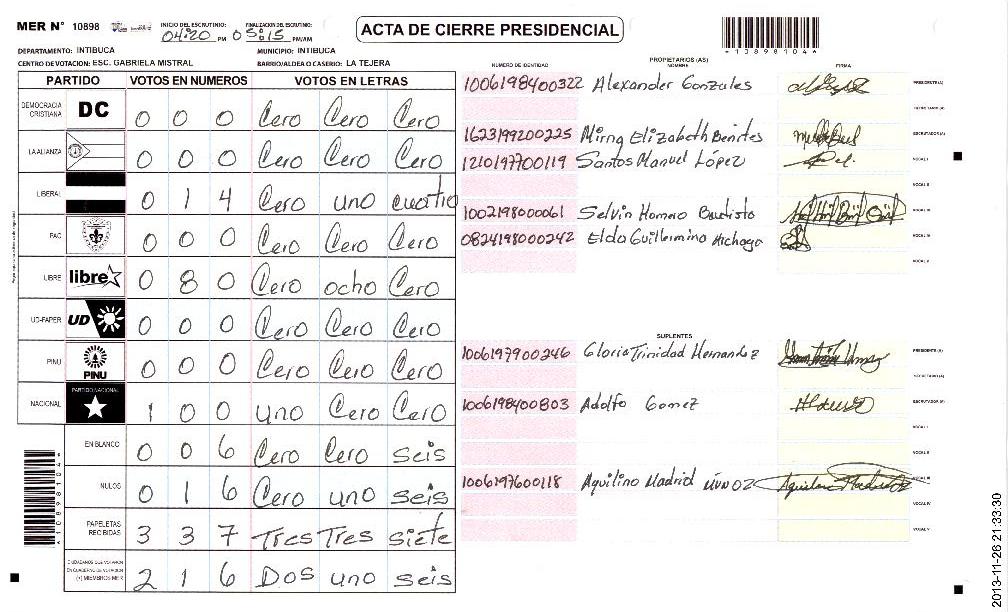 MER N° 10898 INICIO DEL ESCRUTINIO: 04:20 PM FINALIZACION DEL ESCRUTINIO: 05:15 PM/AM ACTA DE CIERRE PRESIDENCIAL *10898104*
DEPARTAMENTO: INTIBUCA MUNICIPIO: INTIBUCA
CENTRO DE VOTACION: ESC. GABRIELA MISTRAL BARRIO/ALDEA O CASERIO: LA TEJERA
PARTIDO VOTOS EN NUMEROS VOTOS EN LETRAS
DEMOCRACIA CRISTIANA DC 0 0 0 Cero Cero Cero
LA ALIANZA 0 0 0 Cero Cero Cero
LIBERAL 0 1 4 Cero uno cuatro
PAC 0 0 0 Cero Cero Cero
LIBRE libre 0 8 0 Cero ocho Cero
UD-FAPER UD 0 0 0 Cero Cero Cero
PINU PINU 0 0 0 Cero Cero Cero
NACIONAL PARTIDO NACIONAL 1 0 0 uno Cero Cero
EN BLANCO 0 0 6 Cero Cero seis
NULOS 0 1 6 Cero uno seis
PAPELETAS RECIBIDAS 3 3 7 Tres Tres siete
CIUDADANOS QUE VOTARON EN CUADERNO DE VOTACION (+) MIEMBROS MER 2 1 6 Dos uno seis
*10898104*
PROPIETARIOS (AS)
NUMERO DE IDENTIDAD NOMBRE FIRMA
1006198400322 Alexander Gonzales PRESIDENTE (A)
SECRETARIO (A)
1623199200225 Mirna Elizabeth Benites ESCRUTADOR (A)
1210197700119 Santos Manuel López VOCAL I
VOCAL II
1002198000061 Selvin Homero Bautisto VOCAL III
0824198000242 Elda Guillermina VOCAL IV
VOCAL V
SUPLENTES
1006197900246 Gloria Trinidad Hernandez PRESIDENTE (A)
SECRETARIO (A)
1006198400803 Adolfo Gomez ESCRUTADOR (A)
VOCAL I
VOCAL II
1006197600118 Aquilino Madrid VOCAL III
VOCAL IV
VOCAL V
2013-11-26 21:33:30